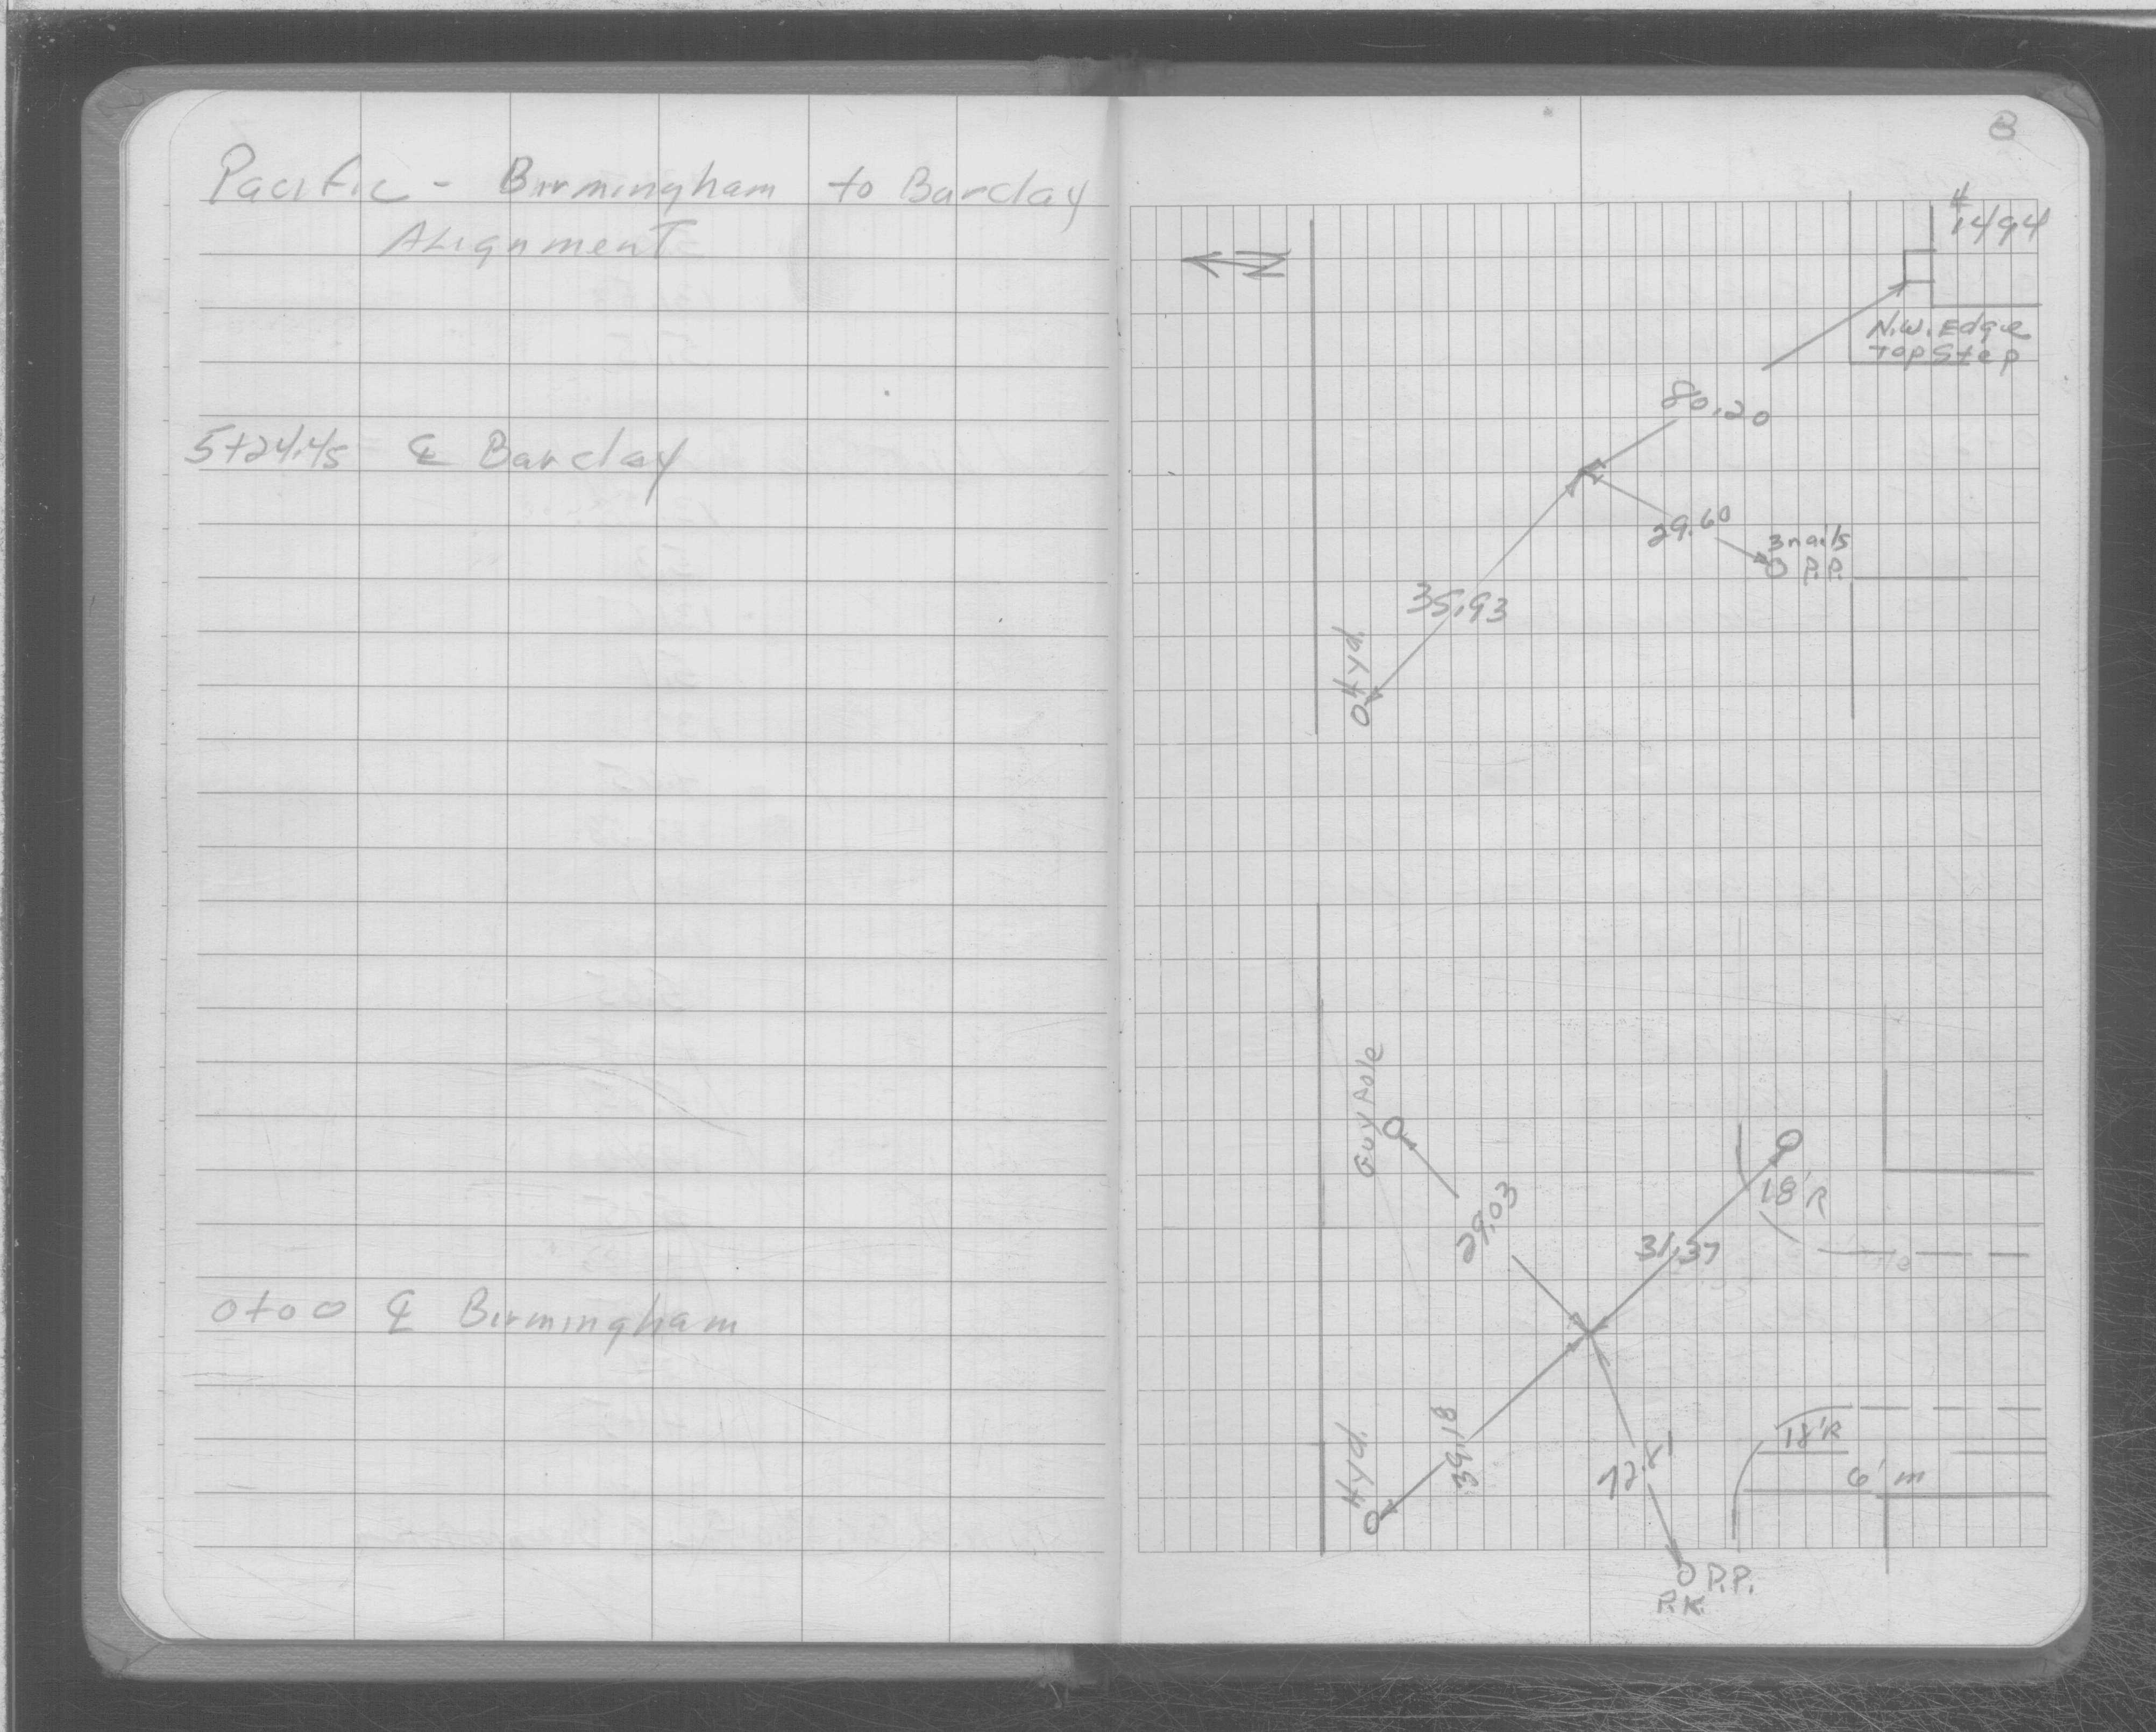 Pacific - Birmingham to Barclay
Alignment
5+24.45 ℄ Barclay
0+00 ℄ Birmingham
8
N
#
1494
N.W. Edge
Top Step
80.20
29.60
3 nails
P.P.
35.93
Hyd.
Guy Pole
29.03
18'R
31.37
Hyd.
39.18
72.81
18'R
6' m
P.P.
P.K.